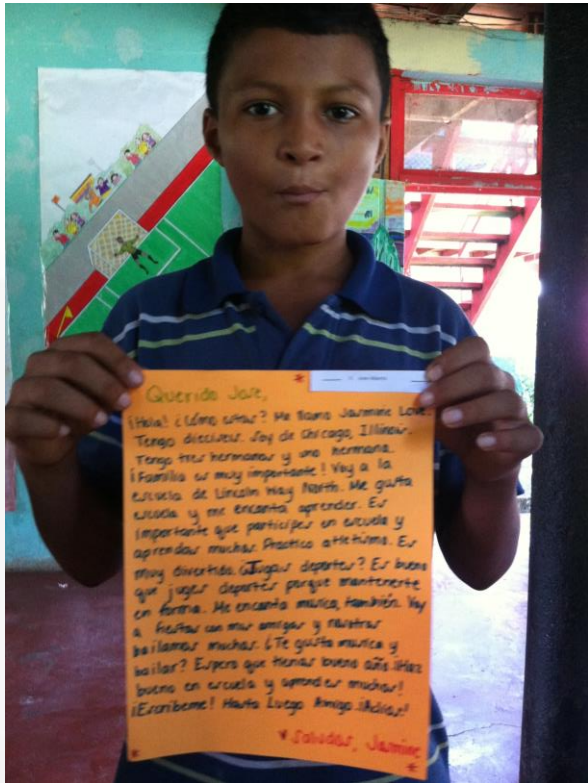 Querido Jose,
¡Hola! ¿Cómo estas? Me llamo Jasmine Love.
Tengo dieciseis. Soy de Chicago, Illinois.
Tengo tres hermanas y una hermana.
¡Familia es muy importante! Voy a la
escuela de Lincoln Way North. Me gusta
escuela y me encanta aprender. Es
importante que participes en escuela y
aprendas muchas. Practico atletismo. Es
muy divertida. ¿Jugas deportes? Es bueno
que juges deportes porque mantenerte
en forma. Me encanta musica, también. Voy
a fiestas con mis amigas y nosotras
bailamos muchas. ¿Te gusta musica y
bailar? Espero que tienas bueno año. ¡Haz
bueno en escuela y aprendes muchas!
¡Escribeme! Hasta Luego Amigo. ¡Adios!
Saludos, Jasmine